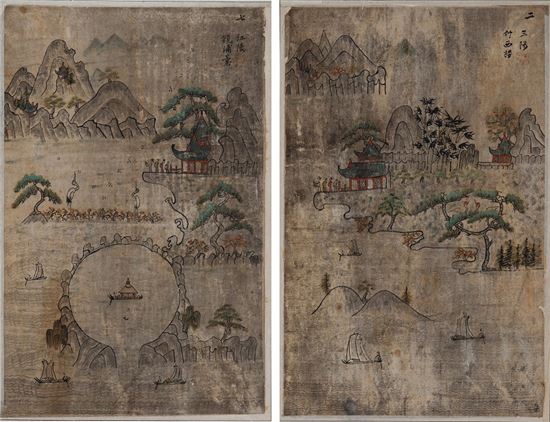 七
江陵
鏡浦臺
二
三陟
竹西樓